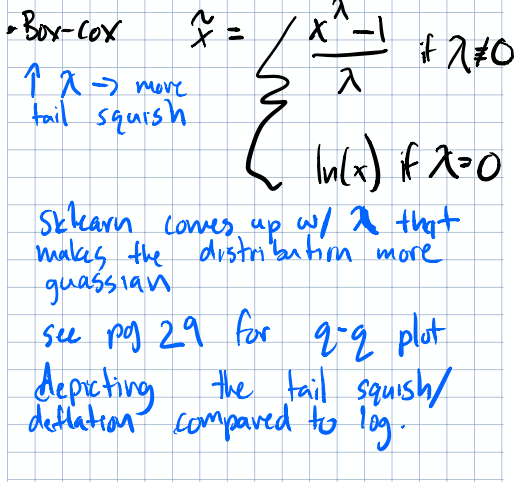 • Box-Cox x̃ = { (x^λ − 1)/λ if λ≠0
ln(x) if λ=0
↑ λ → more
tail squish
Sklearn comes up w/ λ that
makes the distribution more
guassian
see pg 29 for q-q plot
depicting the tail squish/
deflation compared to log.